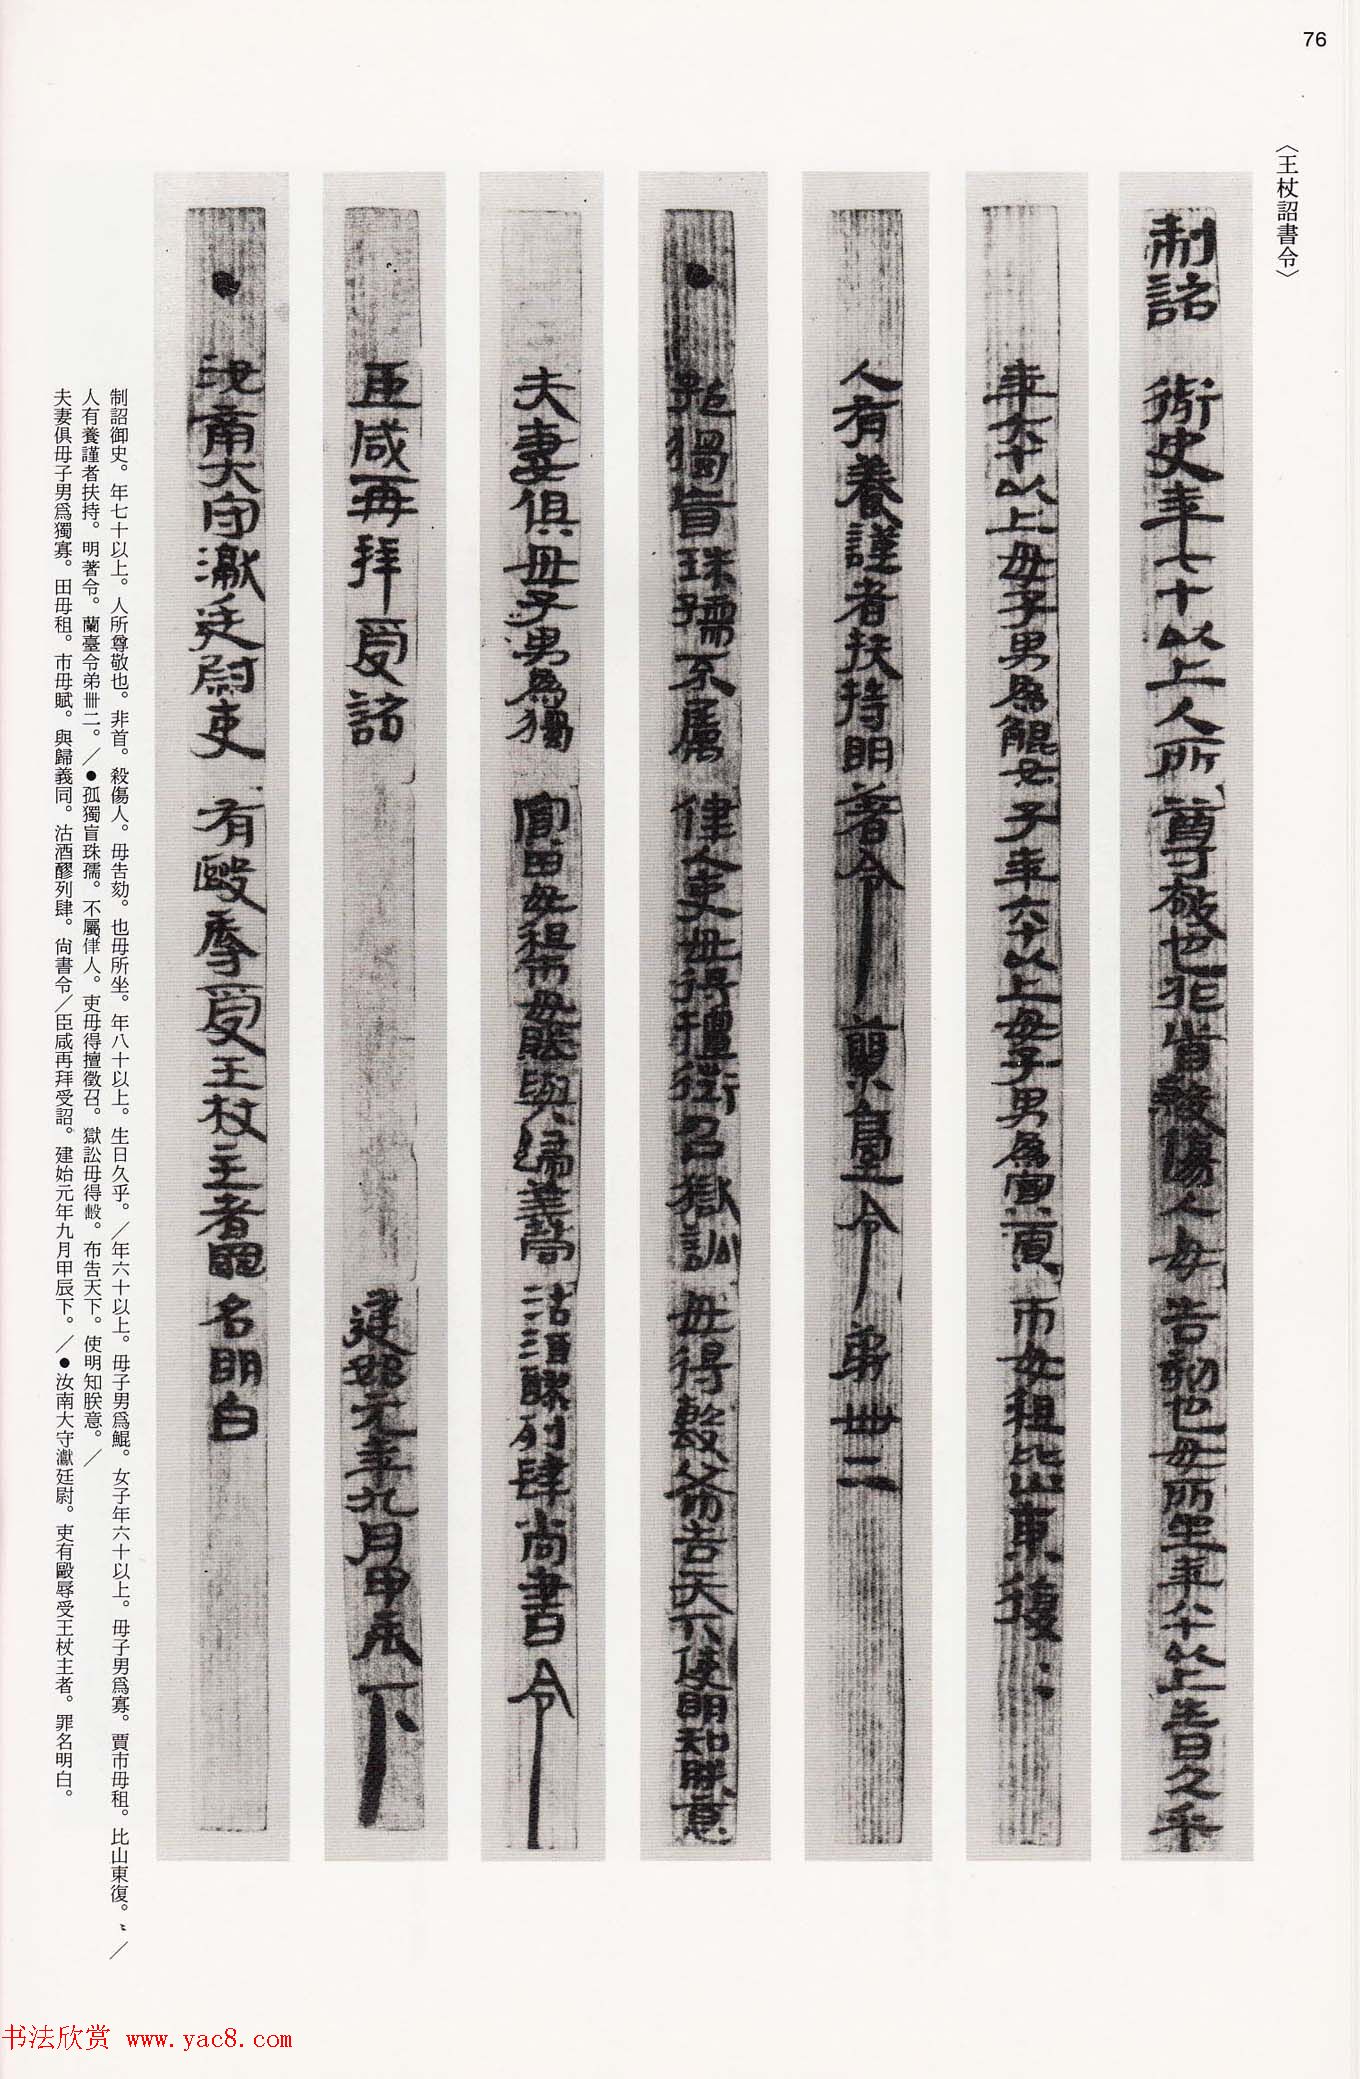 76
〈王杖詔書令〉
制詔御史年七十以上人所尊敬也非首殺傷人毋告劾也毋所坐年八十以上生日久乎
年六十以上毋子男為鯤女子年六十以上毋子男為寡賈市毋租比山東復
人有養謹者扶持明著令蘭臺令弟卌二
●孤獨盲珠孺不屬律人吏毋得擅徵召獄訟毋得毄布告天下使明知朕意
夫妻俱毋子男為獨寡田毋租市毋賦與歸義同沽酒醪列肆尚書令
臣咸再拜受詔 建始元年九月甲辰下
●汝南大守瀗廷尉吏有毆辱受王杖主者罪名明白
制詔御史。年七十以上。人所尊敬也。非首。殺傷人。毋告劾。也毋所坐。年八十以上。生日久乎。／年六十以上。毋子男爲鯤。女子年六十以上。毋子男爲寡。賈市毋租。比山東復。〻／
人有養謹者扶持。明著令。蘭臺令弟卌二。／●孤獨盲珠孺。不屬律人。吏毋得擅徵召。獄訟毋得毄。布告天下。使明知朕意。／
夫妻俱毋子男爲獨寡。田毋租。市毋賦。與歸義同。沽酒醪列肆。尙書令／臣咸再拜受詔。建始元年九月甲辰下。／●汝南大守瀗廷尉。吏有毆辱受王杖主者。罪名明白。
书法欣赏 www.yac8.com